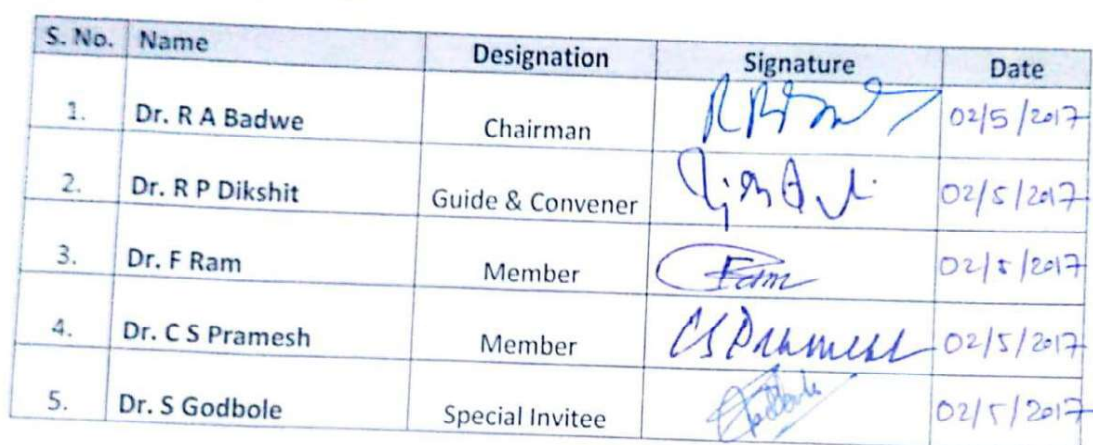 S. No. Name Designation Signature Date
1. Dr. R A Badwe Chairman 02/5/2017
2. Dr. R P Dikshit Guide & Convener 02/5/2017
3. Dr. F Ram Member Fam 02/5/2017
4. Dr. C S Pramesh Member CS Pramesh 02/5/2017
5. Dr. S Godbole Special Invitee 02/5/2017